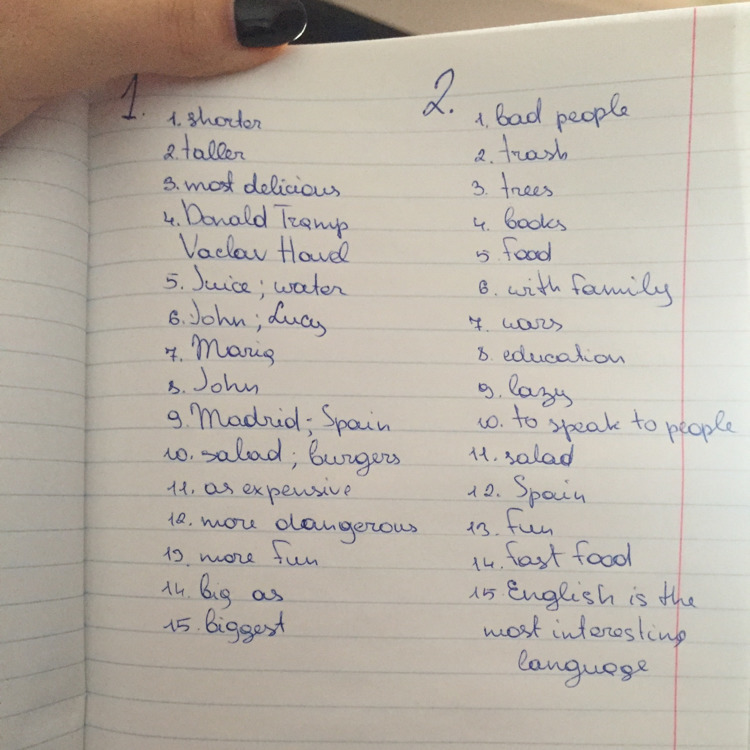 1.
1. shorter
2. taller
3. most delicious
4. Donald Tramp
Vaclav Havel
5. Juice; water
6. John; Lucy
7. Maria
8. John
9. Madrid; Spain
10. salad; burgers
11. as expensive
12. more dangerous
13. more fun
14. big as
15. biggest
2.
1. bad people
2. trash
3. trees
4. books
5. food
6. with family
7. wars
8. education
9. lazy
10. to speak to people
11. salad
12. Spain
13. fun
14. fast food
15. English is the
most interesting
language